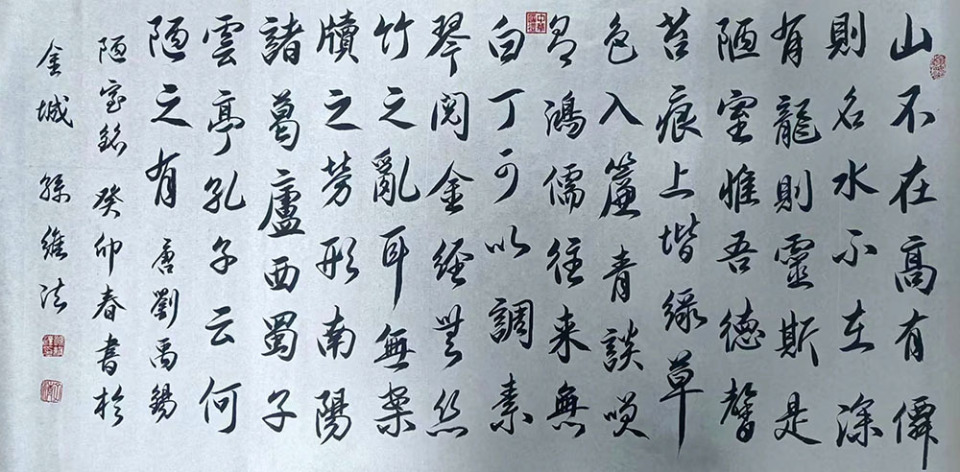 山不在高有僊
則名水不在深
有龍則靈斯是
陋室惟吾德馨
苔痕上堦綠草
色入簾青談笑
有鴻儒往来無
白丁可以調素
琴閱金經無絲
竹之亂耳無案
牘之勞形南陽
諸葛廬西蜀子
雲亭孔子云何
陋之有 唐劉禹錫
陋室銘 癸卯春書於
金城 孫維法